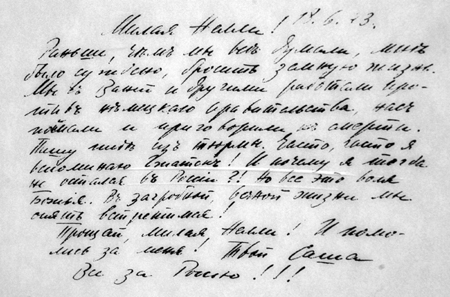 Милая Нелли! 18.6.43.
Раньше, чѣмъ мы всѣ думали, мнѣ
было суждено, бросить земную жизнь.
Мы съ Ваней и другими работали про-
тивъ нѣмецкаго правительства, насъ
поймали и приговорили къ смерти.
Пишу тебѣ изъ тюрьмы. Часто, часто я
вспоминаю Гжатскъ! И почему я тогда
не остался въ Россіи?! Но все это воля
Божья. Въ загробной, вѣчной жизни мы
опять встретимся!
Прощай, милая Нелли! И помо-
лись за меня! Твой Саша
Все за Россію!!!